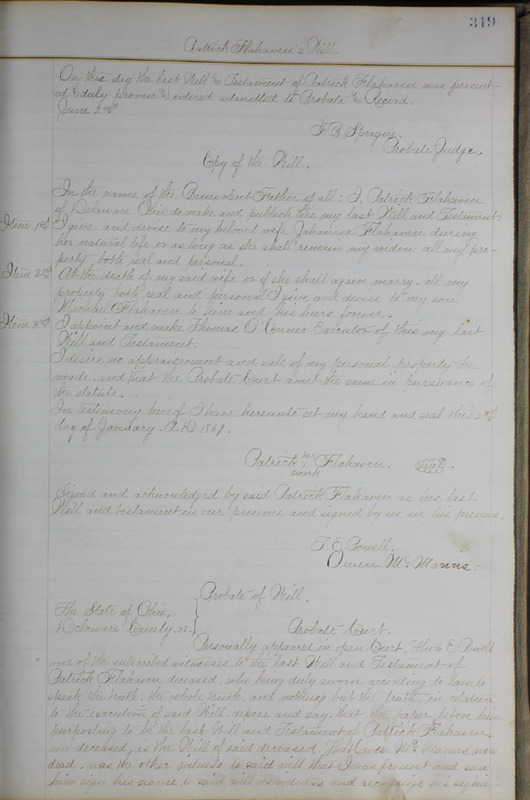 319
Patrick Flahaven's Will.
On this day the last Will & Testament of Patrick Flahaven was present-
ed & duly proven & ordered admitted to Probate & Record.
June 2nd
F. B. Sprague
Probate Judge.
Copy of the Will.
In the name of the Benevolent Father of all: I, Patrick Flahaven
of Delaware Ohio do make and publish this my last Will and Testament,
Item 1st I give and devise to my beloved wife Johanna Flahaven during
her natural life or as long as she shall remain my widow all my pro-
perty both real and personal.
Item 2nd At the death of my said wife or if she shall again marry, all my
property both real and personal I give and devise to my son
Flahaven to him and his heirs forever.
Item 3rd I appoint and make Thomas O'Conner Executor of this my last
Will and Testament.
I desire no appraisement and sale of my personal property be
made and that the Probate Court omit the same in pursuance of
the statute.
In testimony hereof I have hereunto set my hand and seal this 2nd
day of January. A.D. 1869.
Patrick his x mark Flahaven. Seal.
Signed and acknowledged by said Patrick Flahaven as his last
Will and testament in our presence and signed by us in his presence.
T. E. Powell.
Owen McManis.
Probate of Will.
The State of Ohio,
Delaware County, ss. Probate Court.
Personally appeared in open Court, Thos E. Powell
one of the subscribed witnesses to the last Will and Testament of
Patrick Flahaven deceased, who being duly sworn according to law to
speak the truth, the whole truth, and nothing but the truth, in relation
to the execution of said Will, depose and say, that the paper before him
purporting to be the last Will and Testament of Patrick Flahaven,
now deceased, is the Will of said deceased, That Owen McManis, now
dead, was the other witness to said will that I was present and saw
him sign his name to said will as witness and recognize his signa-